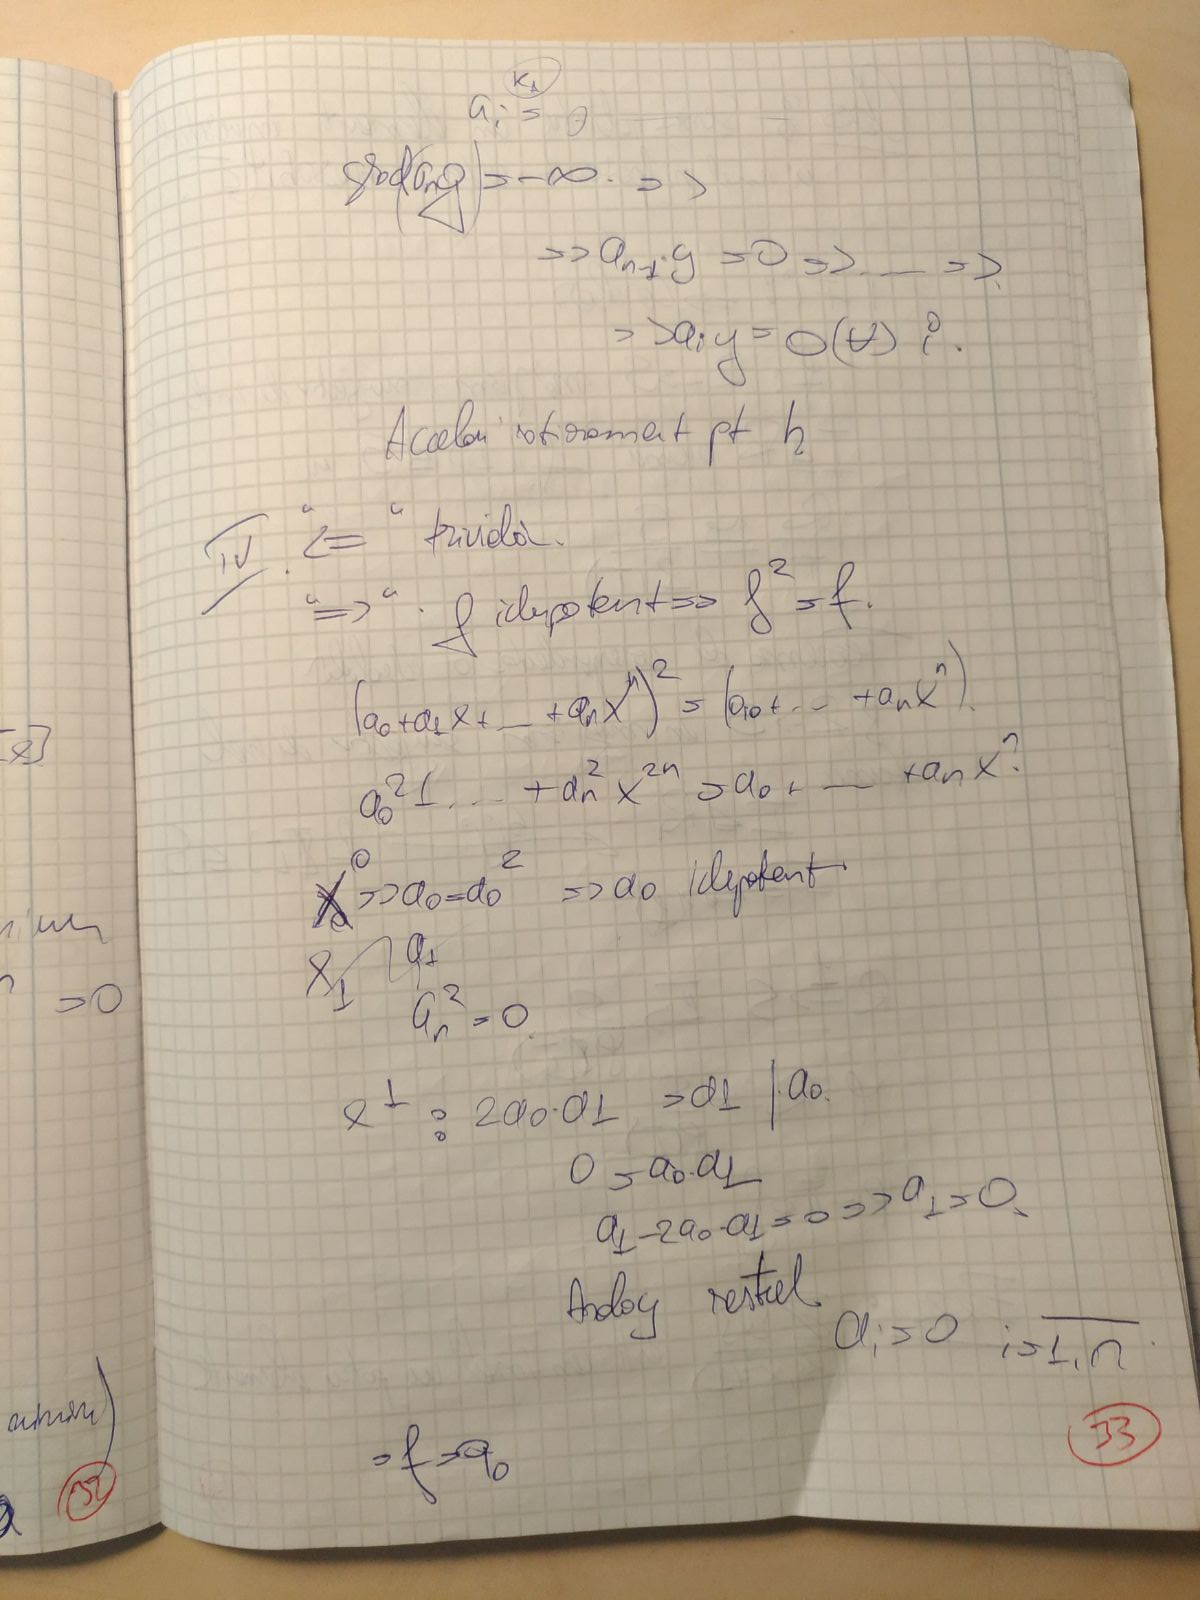 x]
=0
32
K₁
aᵢ = 0
grad(aₙg) = -∞. =>
=> aₙ₋₁·g = 0 => ... =>
=> aᵢg = 0 (∀) i.
Același rationament pt h
IV. "<=" trivială.
"=>". f idepotent => f² = f.
(a₀+a₁x+...+aₙxⁿ)² = (a₀+...+aₙxⁿ).
a₀²+...+aₙ²x²ⁿ = a₀+...+aₙxⁿ.
X⁰ => a₀=a₀² => a₀ idepotent
x₁ a₁
aₙ²=0.
x¹: 2a₀·a₁ = a₁ |·a₀.
0 = a₀·a₁
a₁-2a₀·a₁=0 => a₁=0.
Analog restul
aᵢ=0 i=1,n.
= f = a₀
33